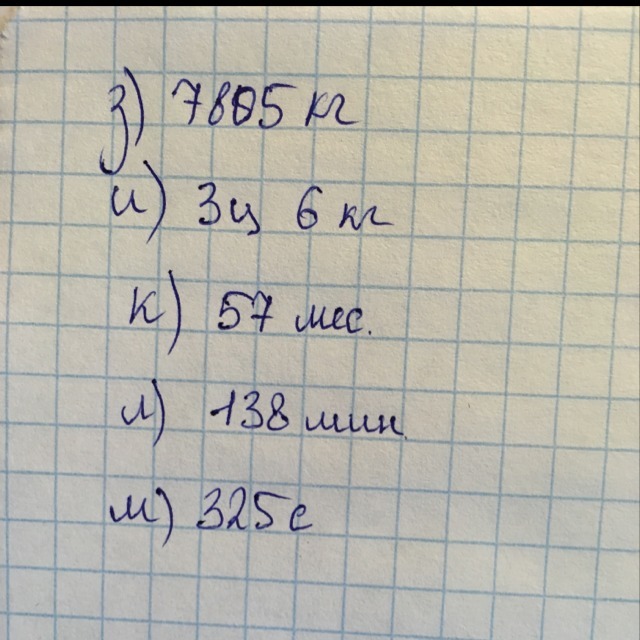 з) 7805 кг
и) 3ц 6 кг
к) 57 мес.
л) 138 мин.
м) 325 с